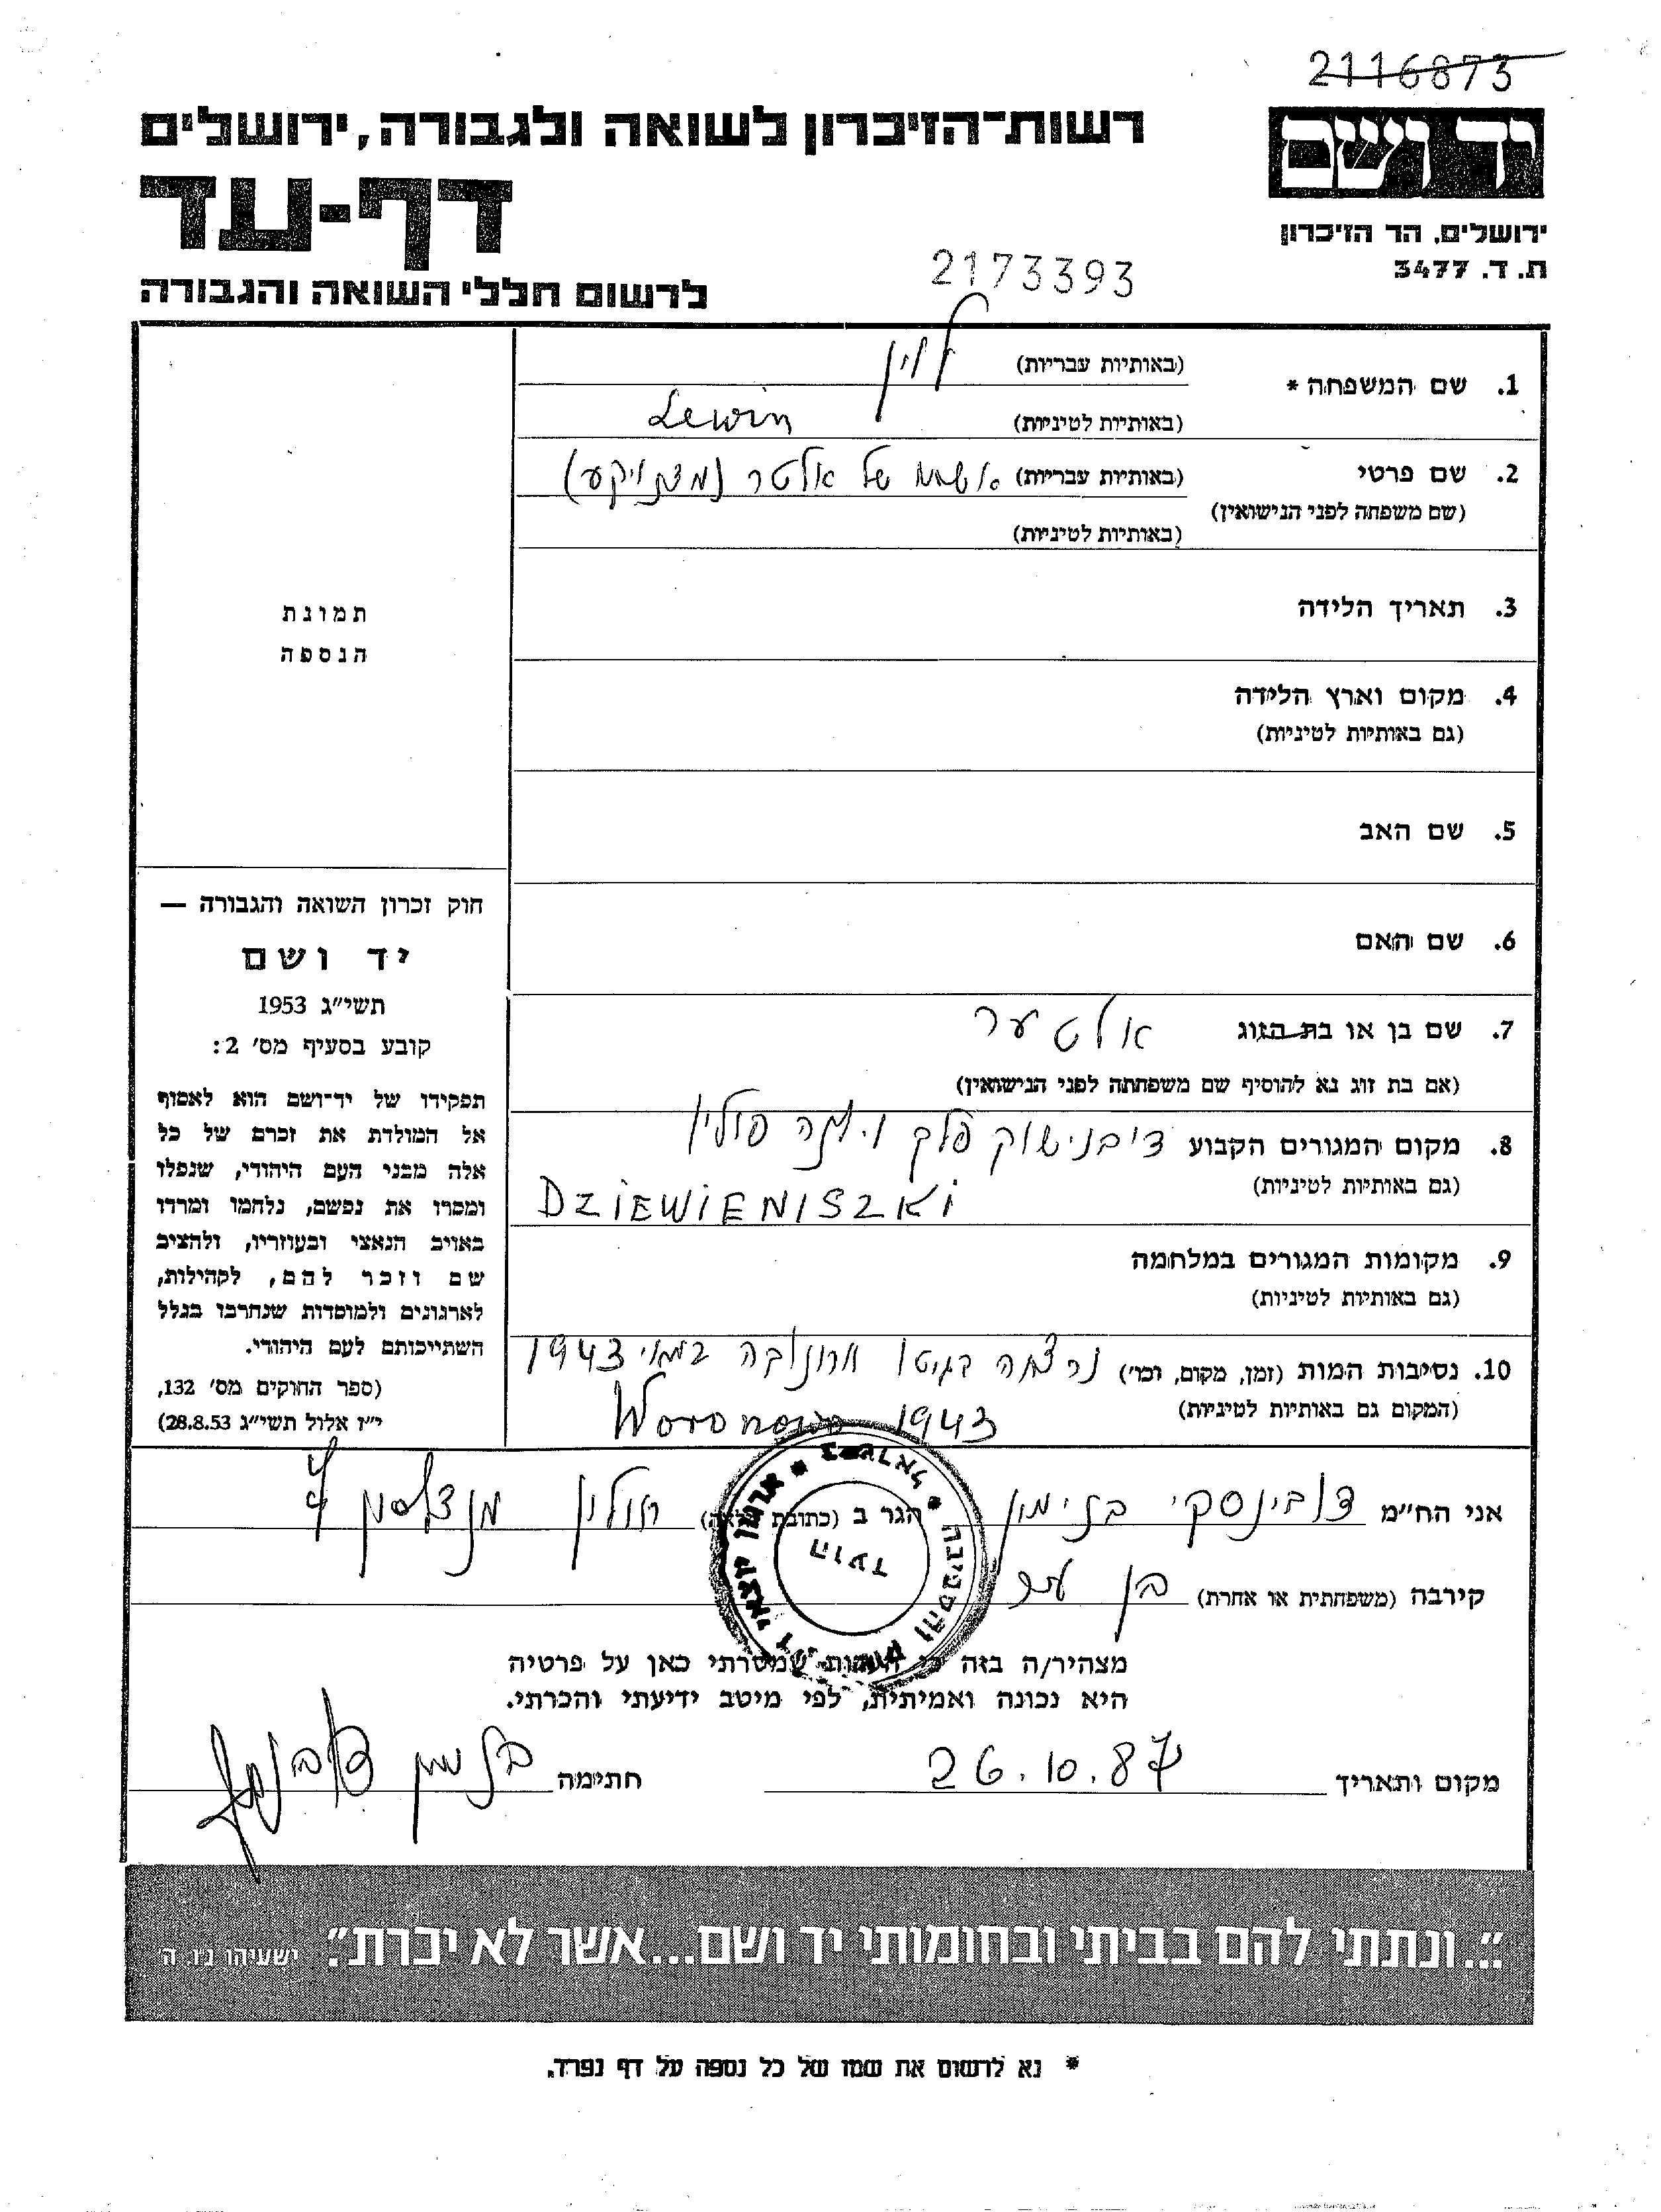 2116873
יד ושם
רשות־הזיכרון לשואה ולגבורה, ירושלים
דף-עד
ירושלים, הר הזיכרון
ת. ד. 3477
2173393
לרשום חללי השואה והגבורה
1. שם המשפחה *
(באותיות עבריות) לוין
(באותיות לטיניות) Lewin
2. שם פרטי
(שם משפחה לפני הנישואין)
(באותיות עבריות) אשתו של אלטר
(באותיות לטיניות)
3. תאריך הלידה
תמונת
הנספה
4. מקום וארץ הלידה
(גם באותיות לטיניות)
5. שם האב
6. שם האם
7. שם בן או בת הזוג אלטער
(אם בת זוג נא להוסיף שם משפחתה לפני הנישואין)
8. מקום המגורים הקבוע דיבנישוק פלך וילנה פולין
(גם באותיות לטיניות) DZIEWIENISZKI
9. מקומות המגורים במלחמה
(גם באותיות לטיניות)
10. נסיבות המות (זמן, מקום, וכו') נרצחה בגיטו וורונובה במאי 1943
(המקום גם באותיות לטיניות) Woronowo 1943
חוק זכרון השואה והגבורה —
יד ושם
תשי״ג 1953
קובע בסעיף מס׳ 2:
תפקידו של יד־ושם הוא לאסוף
אל המולדת את זכרם של כל
אלה מבני העם היהודי, שנפלו
ומסרו את נפשם, נלחמו ומרדו
באויב הנאצי ובעוזריו, ולהציב
שם וזכר להם, לקהילות,
לארגונים ולמוסדות שנחרבו בגלל
השתייכותם לעם היהודי.
(ספר החוקים מס׳ 132,
י״ז אלול תשי״ג 28.8.53)
אני הח״מ דובינסקי בנימין הגר ב (כתובת מלאה) חולון מנדלסון 4
קירבה (משפחתית או אחרת) בן
ארגון יוצאי והסביבה * בישראל *
הועד
מצהיר/ה בזה כי העדות שמסרתי כאן על פרטיה
היא נכונה ואמיתית, לפי מיטב ידיעתי והכרתי.
מקום ותאריך 26.10.87 חתימה בנימין דובינסקי
״...ונתתי להם בביתי ובחומותי יד ושם...אשר לא יכרת״. ישעיהו נ״ו. ה׳
* נא לרשום את שמו של כל נספה על דף נפרד.